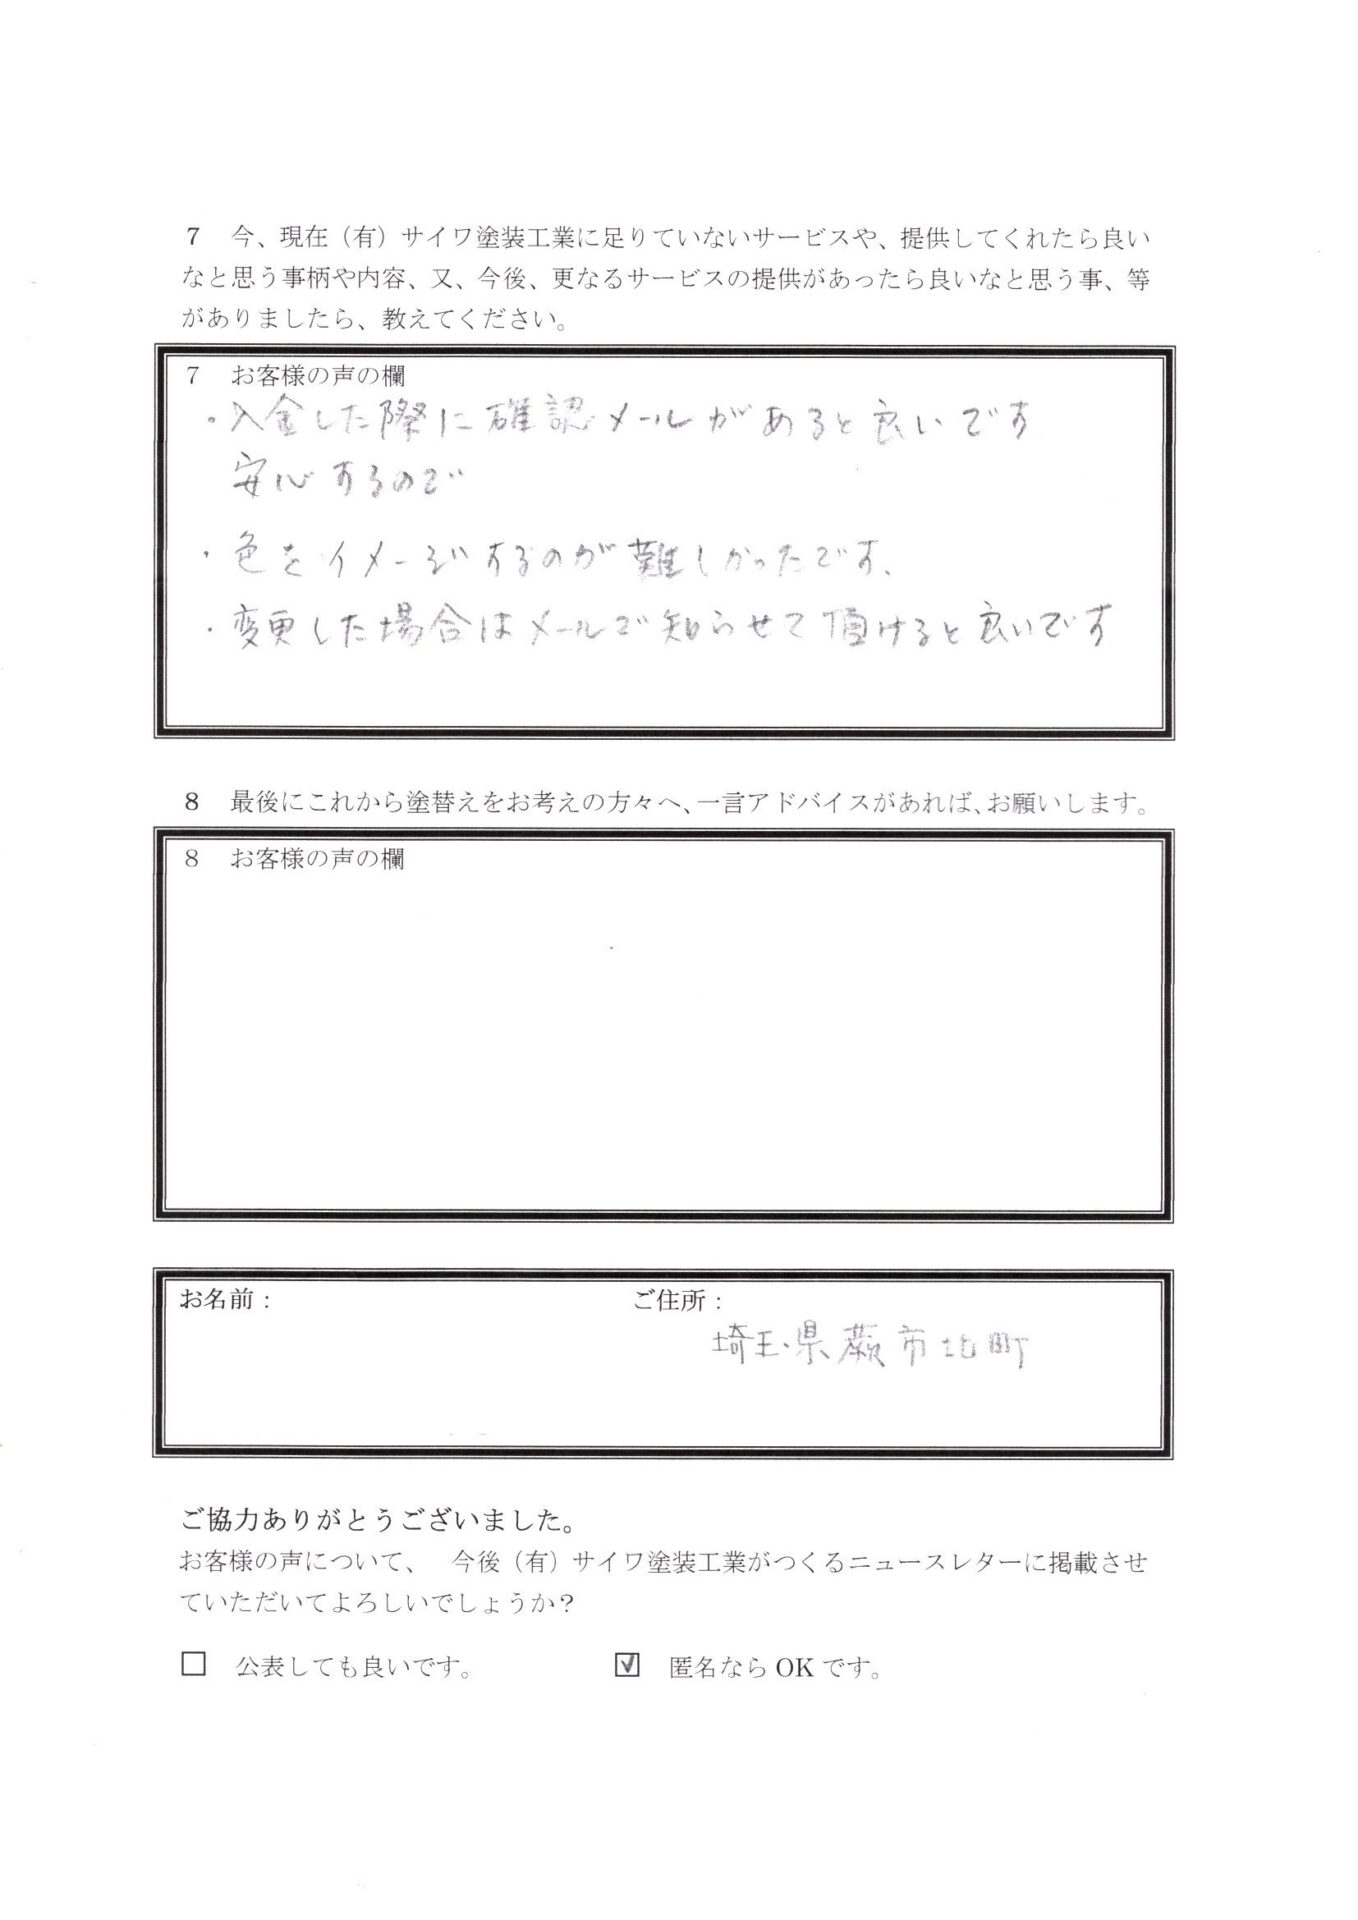 ７　今、現在（有）サイワ塗装工業に足りていないサービスや、提供してくれたら良い
なと思う事柄や内容、又、今後、更なるサービスの提供があったら良いなと思う事、等
がありましたら、教えてください。
７　お客様の声の欄
・入金した際に確認メールがあると良いです
安心するので
・色をイメージするのが難しかったです、
・変更した場合はメールで知らせて頂けると良いです
８　最後にこれから塗替えをお考えの方々へ、一言アドバイスがあれば、お願いします。
８　お客様の声の欄
お名前：
ご住所：
埼玉県蕨市北町
ご協力ありがとうございました。
お客様の声について、　今後（有）サイワ塗装工業がつくるニュースレターに掲載させ
ていただいてよろしいでしょうか？
□　公表しても良いです。
☑　匿名なら OK です。